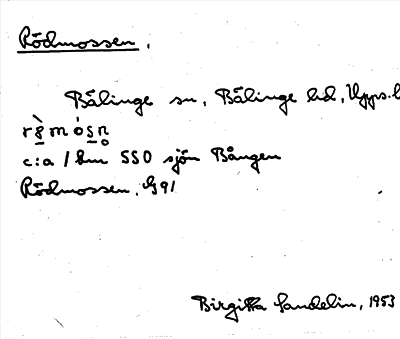 Rödmossen.
Bälinge sn, Bälinge hd, Upps. l
c:a 1 km SSO sjön Bången
Rödmossen. G91
Birgitta Sandelin, 1953